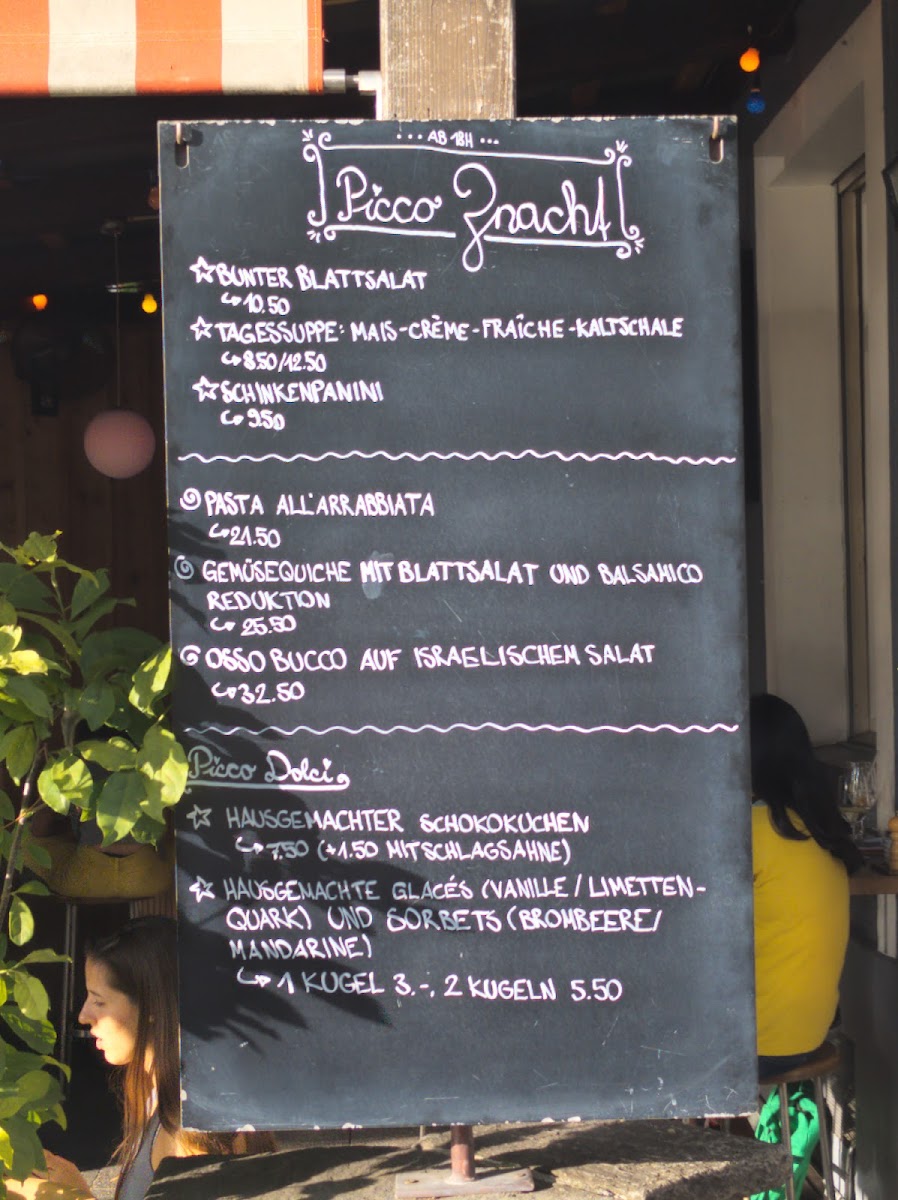 ... AB 18H ...
Picco Znacht
BUNTER BLATTSALAT
10.50
TAGESSUPPE: MAIS-CRÈME-FRAÎCHE-KALTSCHALE
8.50/12.50
SCHINKENPANINI
9.50
PASTA ALL'ARRABBIATA
21.50
GEMÜSEQUICHE MIT BLATTSALAT UND BALSAMICO
REDUKTION
25.50
OSSO BUCCO AUF ISRAELISCHEM SALAT
32.50
Picco Dolci
HAUSGEMACHTER SCHOKOKUCHEN
7.50 (+1.50 MIT SCHLAGSAHNE)
HAUSGEMACHTE GLACÉS (VANILLE/LIMETTEN-
QUARK) UND SORBETS (BROMBEERE/
MANDARINE)
1 KUGEL 3.-, 2 KUGELN 5.50